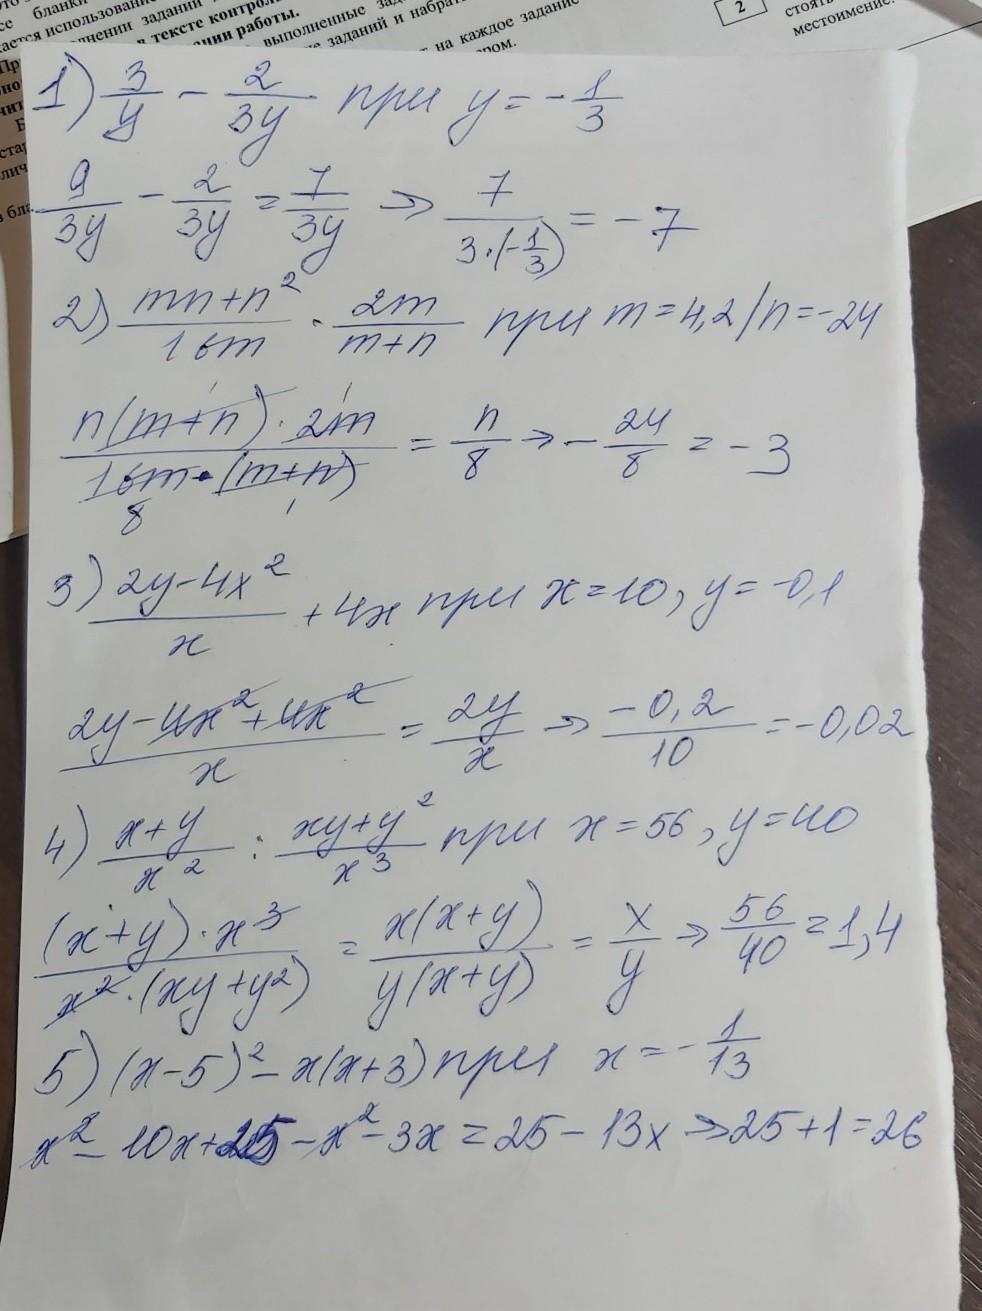 се бланки
кается использование
лнении заданий
в тексте контрол
нии работы.
выполненные зада
заданий и набрат
на каждое задание
ром.
2
стоять
местоимение.
1) 3/y - 2/3y при y = -1/3
9/3y - 2/3y = 7/3y => 7/(3·(-1/3)) = -7
2) (mn+n²)/16m · 2m/(m+n) при m=4,2 / n=-24
(n(m+n)·2m)/(16m·(m+n)) = n/8 → -24/8 = -3
8
3) (2y-4x²)/x + 4x при x=10, y=-0,1
(2y-4x²+4x²)/x = 2y/x => -0,2/10 = -0,02
4) (x+y)/x² : (xy+y²)/x³ при x=56, y=40
((x+y)·x³)/(x²·(xy+y²)) = x(x+y)/y(x+y) = x/y => 56/40 = 1,4
5) (x-5)² - x(x+3) при x = -1/13
x² - 10x + 25 - x² - 3x = 25 - 13x => 25+1 = 26